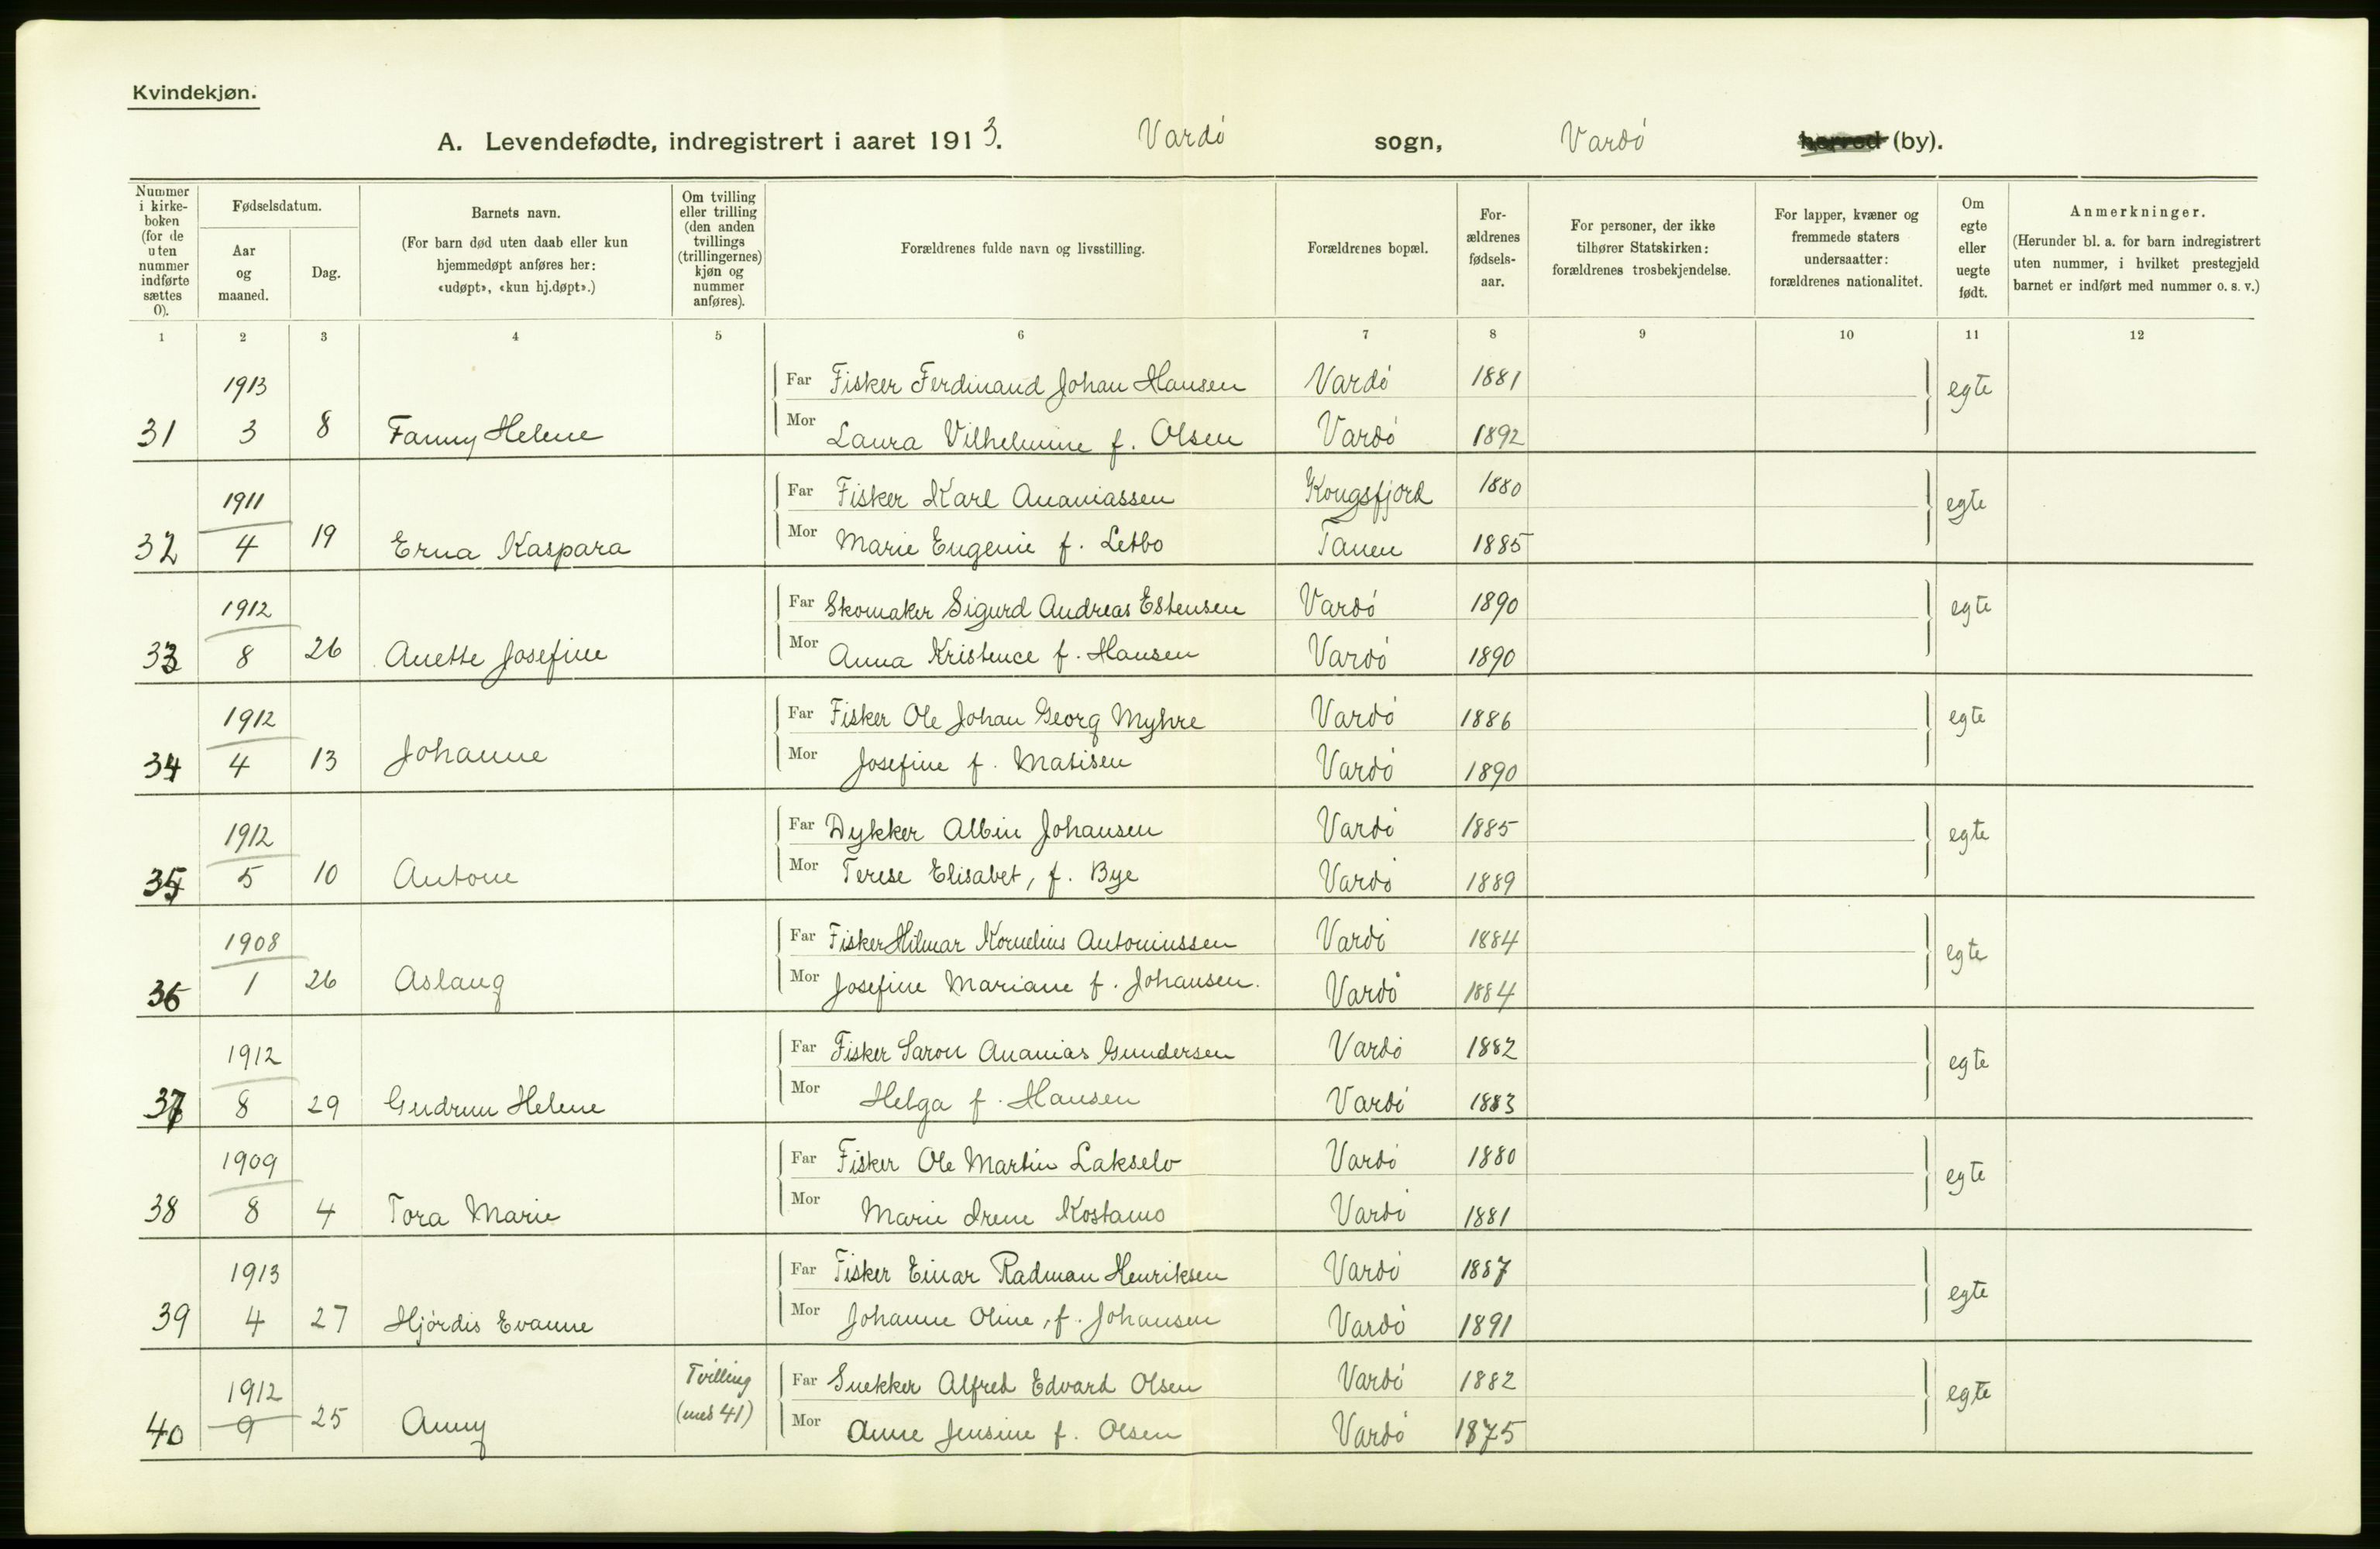 Kvindekjøn.
A. Levendefødte, indregistrert i aaret 1913. Vardö sogn, Vardö herred (by).
Nummer i kirke-boken (for de uten nummer indførte sættes 0).
Fødselsdatum.
Aar og maaned.
Dag.
Barnets navn.
(For barn død uten daab eller kun hjemmedøpt anføres her: «udøpt», «kun hj.døpt».)
Om tvilling eller trilling (den anden tvillings (trillingernes) kjøn og nummer anføres).
Forældrenes fulde navn og livsstilling.
Forældrenes bopæl.
For-ældrenes fødsels-aar.
For personer, der ikke tilhører Statskirken: forældrenes trosbekjendelse.
For lapper, kvæner og fremmede staters undersaatter: forældrenes nationalitet.
Om egte eller uegte født.
Anmerkninger.
(Herunder bl. a. for barn indregistrert uten nummer, i hvilket prestegjeld barnet er indført med nummer o. s. v.)
1 2 3 4 5 6 7 8 9 10 11 12
1913 Far Fisker Ferdinand Johan Hansen Vardö 1881 egte
31 3 8 Fanny Helene Mor Laura Vilhelmine f. Olsen Vardö 1892
1911 Far Fisker Karl Ananiassen Kongsfjord 1880 egte
32 4 19 Erna Kaspara Mor Marie Eugenie f. Letbo Tanen 1885
1912 Far Skomaker Sigurd Andreas Estensen Vardö 1890 egte
33 8 26 Anette Josefine Mor Anna Kristence f. Hansen Vardö 1890
1912 Far Fisker Ole Johan Georg Myhre Vardö 1886 egte
34 4 13 Johanne Mor Josefine f. Matisen Vardö 1890
1912 Far Dykker Albin Johansen Vardö 1885 egte
35 5 10 Antone Mor Terese Elisabet, f. Bye Vardö 1889
1908 Far Fisker Hilmar Kornelius Antoniussen Vardö 1884 egte
36 1 26 Aslaug Mor Josefine Mariane f. Johansen. Vardö 1884
1912 Far Fisker Saron Ananias Gundersen Vardö 1882 egte
37 8 29 Gudrun Helene Mor Helga f. Hansen Vardö 1883
1909 Far Fisker Ole Martin Lakselv Vardö 1880 egte
38 8 4 Tora Marie Mor Marie Irene Kostamo Vardö 1881
1913 Far Fisker Einar Radman Henriksen Vardö 1887 egte
39 4 27 Hjördis Evanne Mor Johanne Oline, f. Johansen Vardö 1891
1912 Tvilling Far Snekker Alfred Edvard Olsen Vardö 1882 egte
40 9 25 Anny (med 41) Mor Anne Jensine f. Olsen Vardö 1875